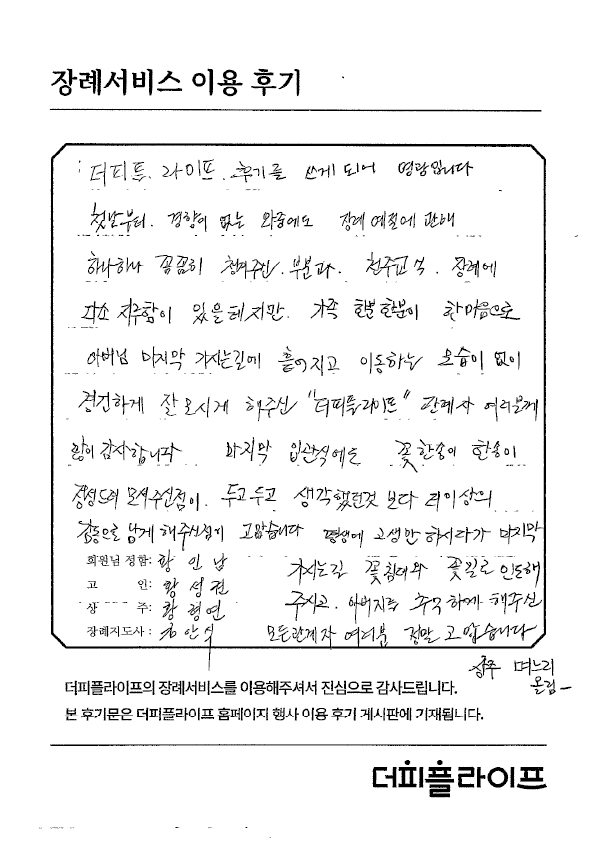 장례서비스 이용 후기
더피플 라이프 후기를 쓰게 되어 영광입니다
첫날부터. 경황이 없는 와중에도 장례 예절에 관해
하나하나 꼼꼼히 챙겨주신. 부분과. 천주교식. 장례에
다소 지루함이 있을테지만. 가족 한분 한분이 한마음으로
아버님 마지막 가시는길에 흩어지고 이동하는 모습이 없이
경건하게 잘 모시게 해주신 "더피플라이프" 관계자 여러분께
많이 감사합니다 마지막 입관식에는 꽃 한송이 한송이
정성드려 모셔주신점이. 두고두고 생각했던것 보다 더이상의
감동으로 남게 해주셨습니다 고맙습니다 평생에 고생만 하시다가 마지막
회원님 정함: 황인남 가시는길 꽃침대와 꽃길로 인도해
고 인: 황성
상 주: 황형연 주시고. 아버지를 추억하게 해주신
장례지도사: 모든관계자 여러분 정말 고맙습니다
상주 며느리
올림-
더피플라이프의 장례서비스를 이용해주셔서 진심으로 감사드립니다.
본 후기문은 더피플라이프 홈페이지 행사 이용 후기 게시판에 기재됩니다.
더피플라이프